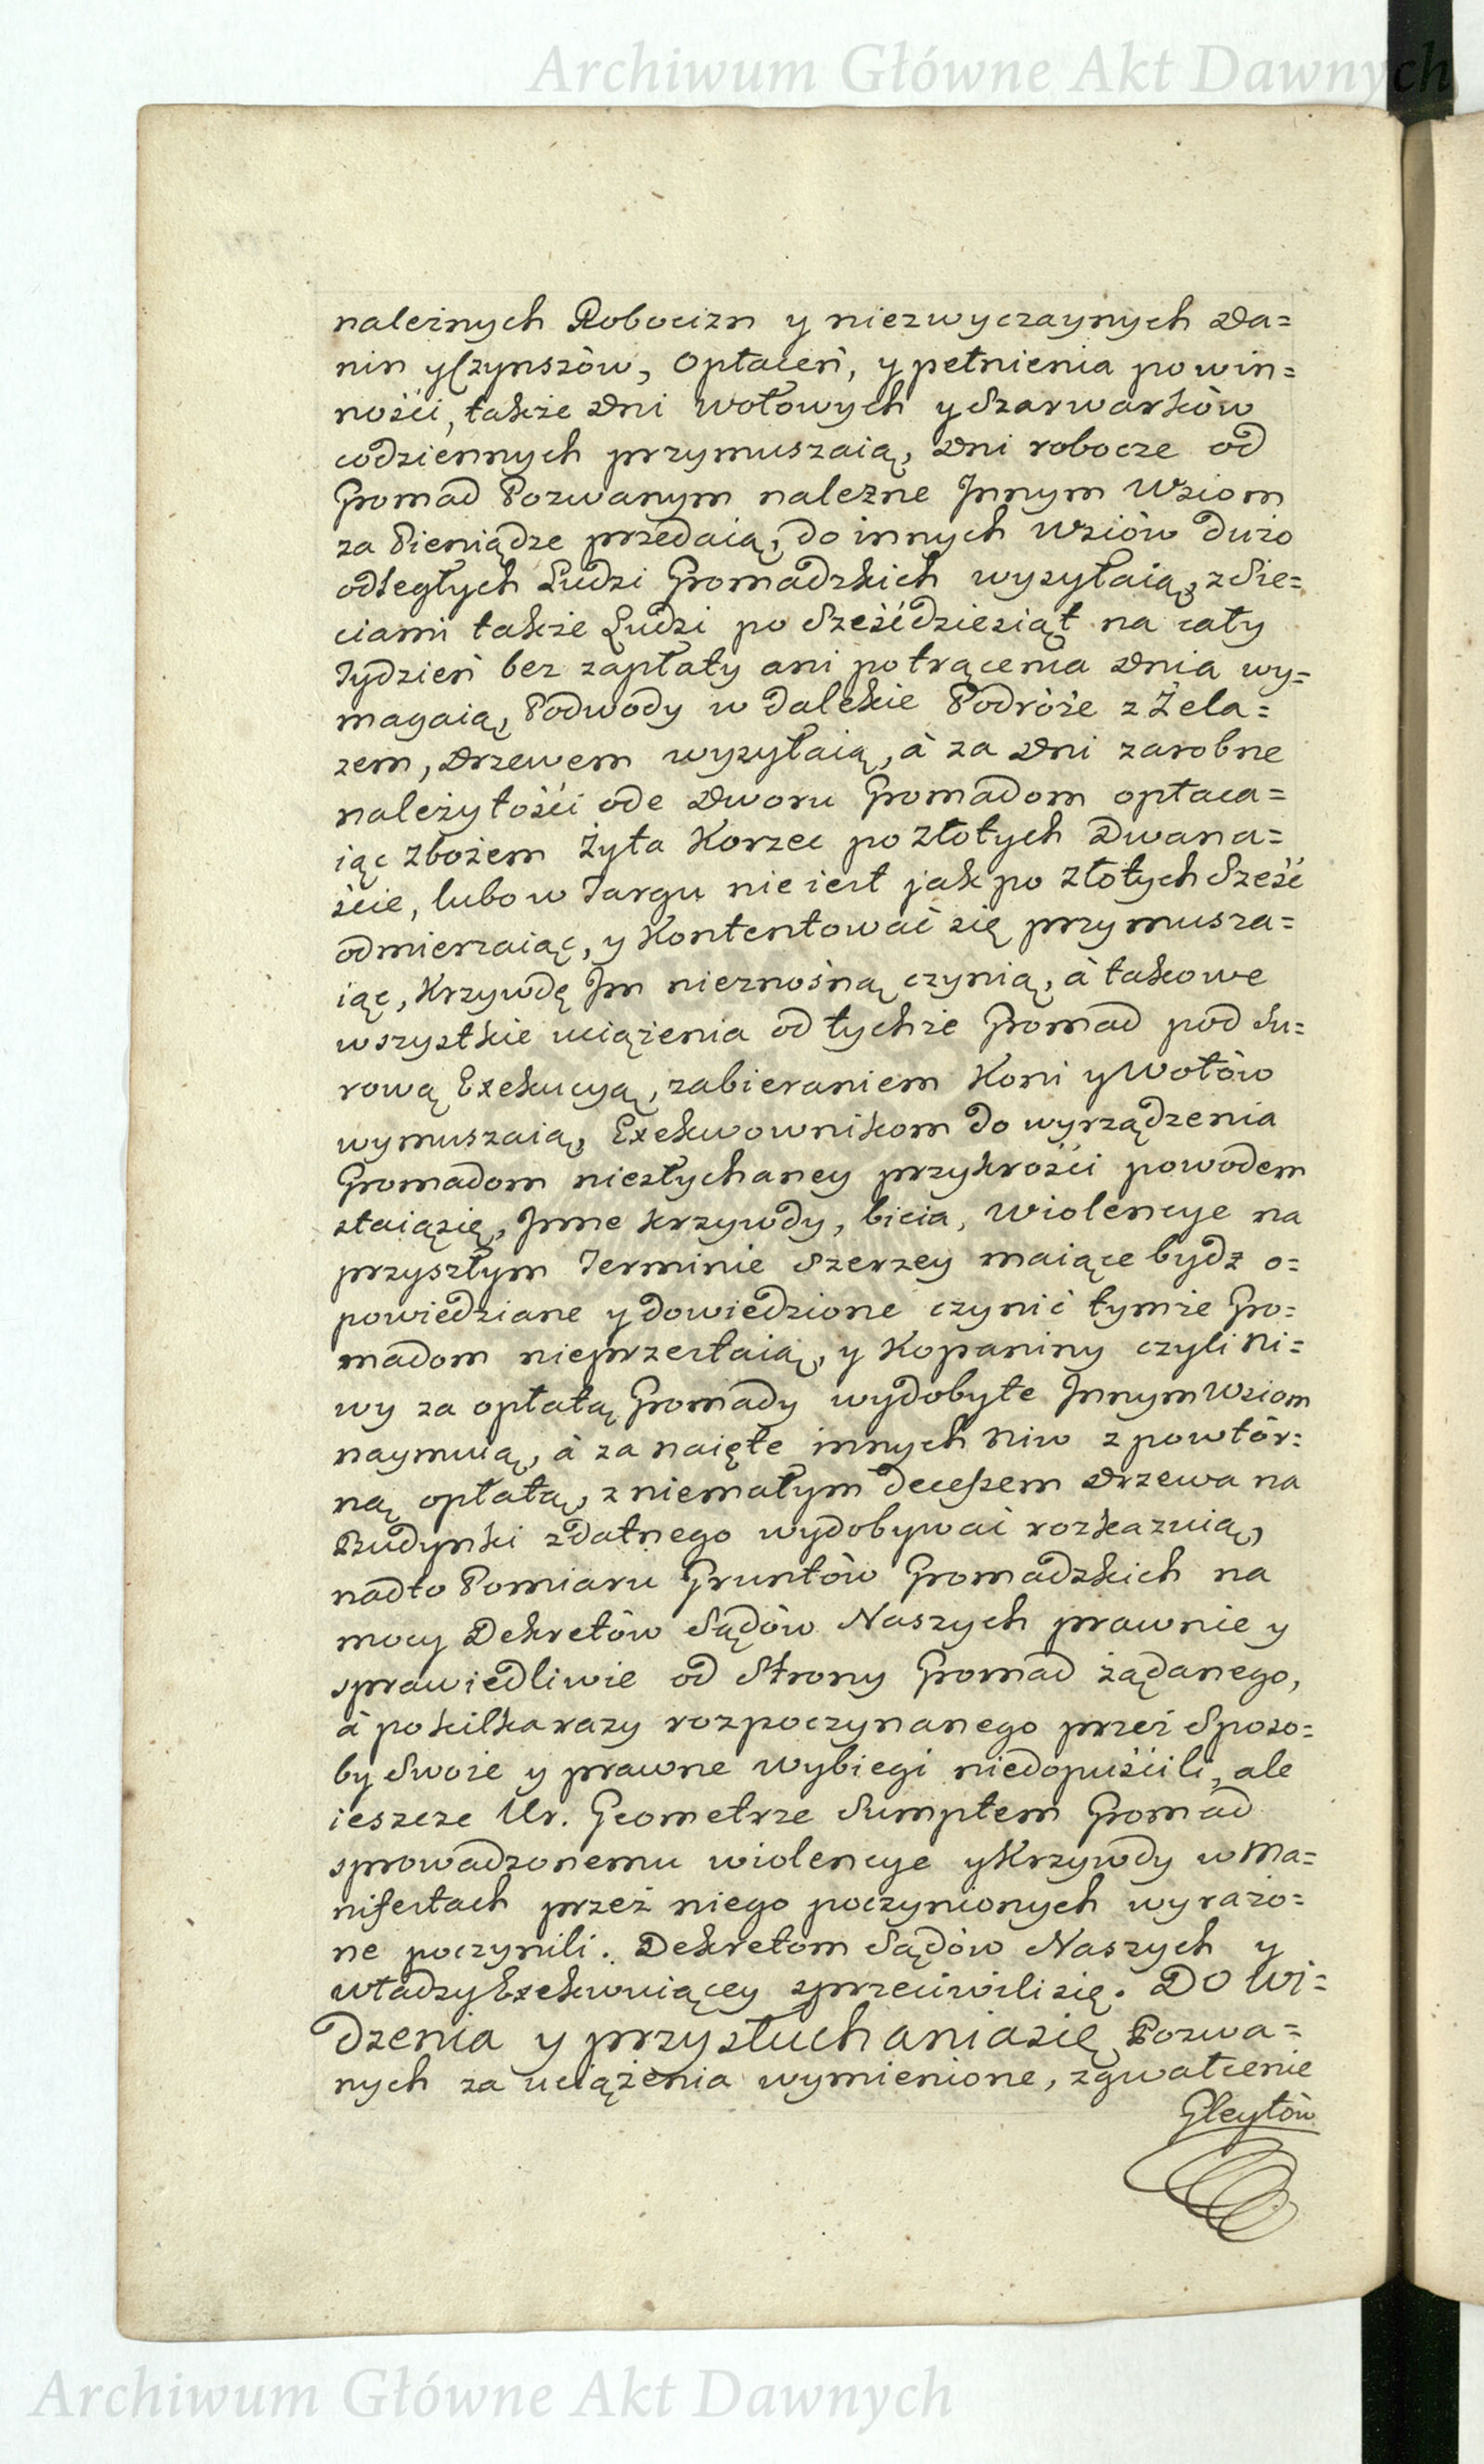 Archiwum Główne Akt Dawnych
należnych Robocizn y niezwyczaynych Da=
nin y Czynszów, Opłaceń, y pełnienia powin=
ności, także Dni wołowych y Szarwarków
codziennych przymuszaią, Dni robocze od
Gromad Pozwanym należne Jnnym Wsiom
za Pieniądze przedaią, do innych Wsiów dużo
odległych Ludzi Gromadzkich wysyłaią, z Sie=
ciami także Ludzi po Sześćdziesiąt na cały
Tydzień bez zapłaty ani potrącenia Dnia wy=
magaią, Podwody w dalekie Podróże z Żela=
zem, Drzewem wysyłaią, à za Dni zarobne
należytości ode Dworu Gromadom opłaca=
iąc Zbożem Żyta Korzec po Złotych Dwana=
ście, lubo w Targu nie iest jak po Złotych Sześć
odmierzaiąc, y Kontentować się przymusza=
iąc, Krzywdę Jm nieznośną czynią, à takowe
wszystkie uciążenia od tychże Gromad pod Su=
rową Exekucyą, zabieraniem Koni y Wołów
wymuszaią, Exekwownikom do wyrządzenia
Gromadom niesłychaney przykrości powodem
staiąsię, Jnne krzywdy, bicia, Wiolencye na
przyszłym Terminie Szerzey maiące bydz o=
powiedziane y dowiedzione czynić tymże Gro=
madom nieprzestaią, y Kopaniny czyli Ni=
wy za opłatą Gromady wydobyte Jnnym Wsiom
naymuią, à za naięte innych Niw z powtór=
ną opłatą, z niemałym decessem Drzewa na
Budynki zdatnego wydobywać rozkazuią,
nadto Pomiaru Gruntów Gromadzkich na
mocy Dekretów Sądów Naszych prawnie y
sprawiedliwie od Strony Gromad żądanego,
à pokilkarazy rozpoczynanego przez Sposo=
by Swoie y prawne wybiegi niedopuścili, ale
ieszcze Ur. Geometrze Sumptem Gromad
sprowadzonemu wiolencye y Krzywdy w Ma=
nifestach przez niego poczynionych wyrażo=
ne poczynili. Dekretom Sądów Naszych y
władzy Exekwuiącey sprzeciwili się. Do Wi=
dzenia y przysłuchaniasię Pozwa=
nych za uciążenia wymienione, zgwałcenie
Gleytów
Archiwum Główne Akt Dawnych